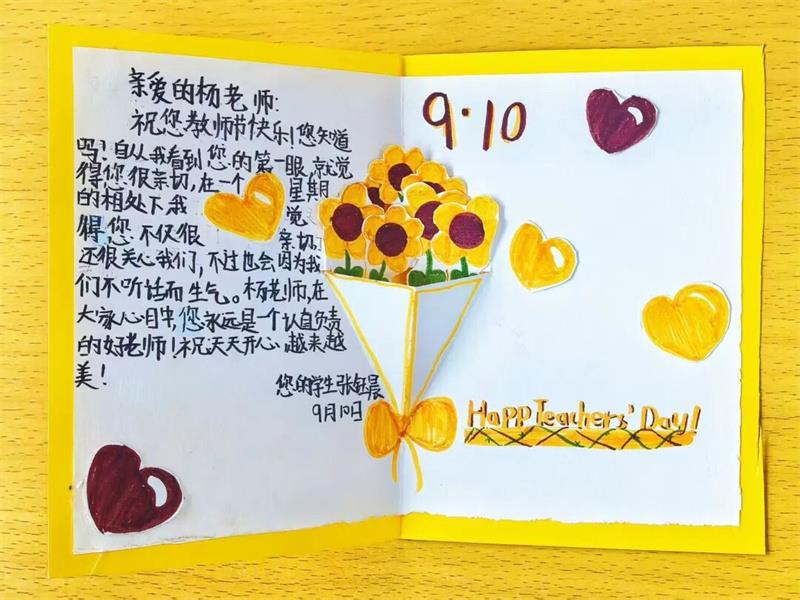 亲爱的杨老师:
祝您教师节快乐!您知道
吗?自从我看到您的第一眼,就觉
得您很亲切,在一个星期
的相处下,我觉
得您不仅很亲切,
还很关心我们,不过也会因为我
们不听话而生气。杨老师,在
大家心目中,您永远是一个认真负责
的好老师!祝天天开心,越来越
美!
您的学生张钰晨
9月10日
9·10
Happ Teachers' Day!